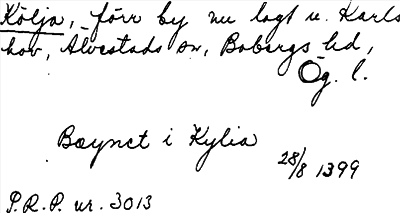 Kölja, förr by nu lagt u. Karls
hov, Alvestads sn, Bobergs hd,
Ög. l.
Boynet i Kylia
28/8 1399
P.R.P. nr. 3013